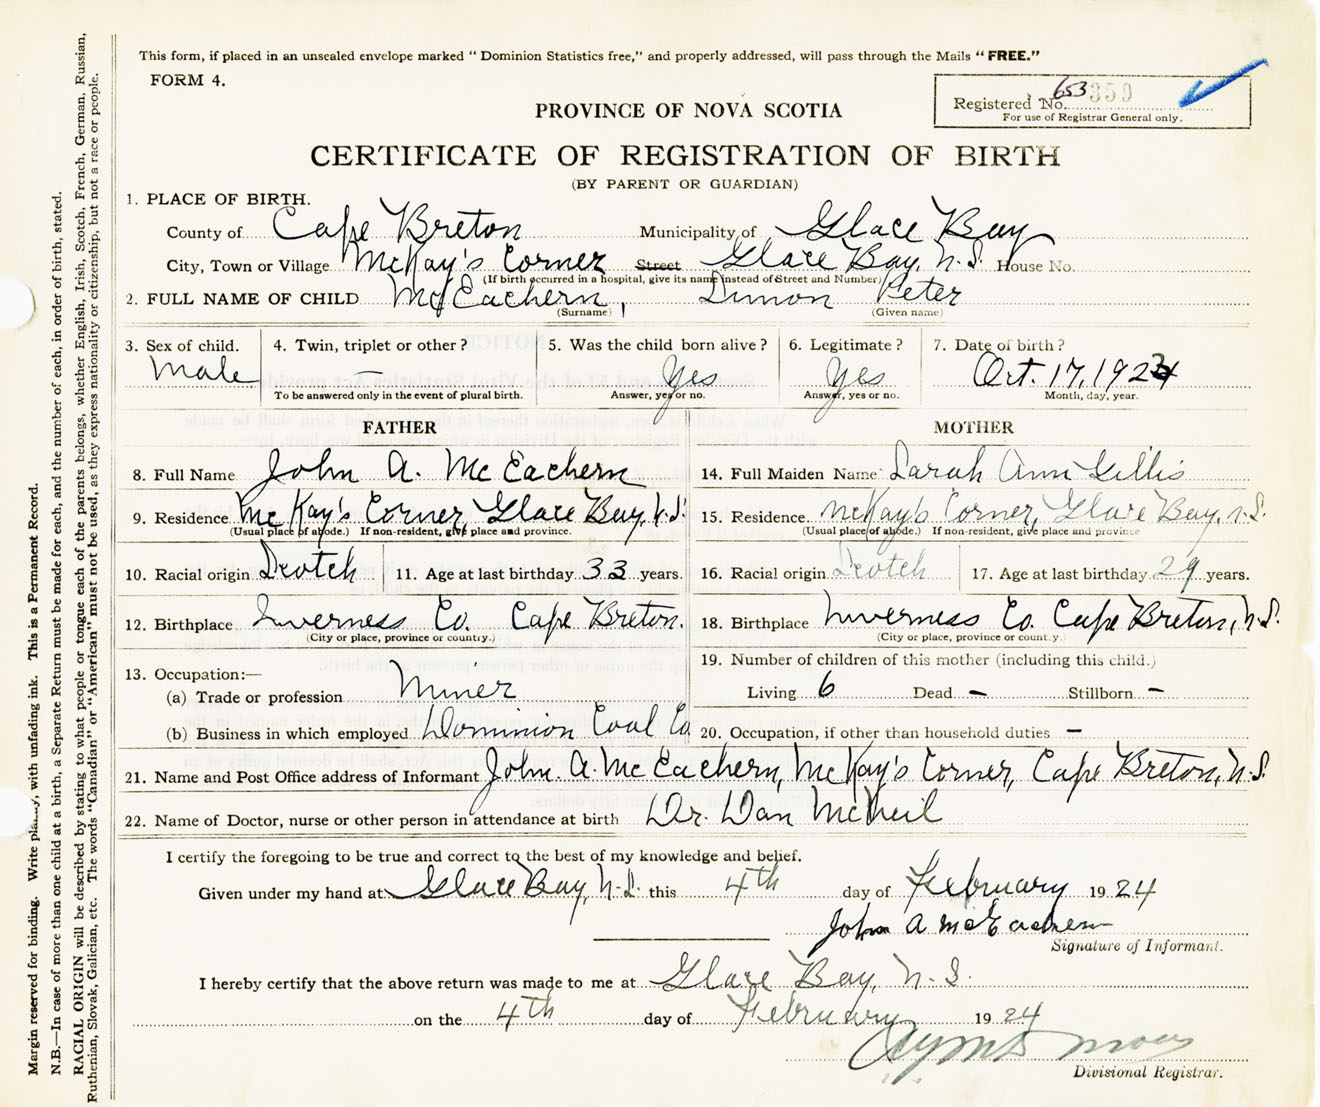 This form, if placed in an unsealed envelope marked " Dominion Statistics free," and properly addressed, will pass through the Mails " FREE."
FORM 4.
Registered No. 653 350
For use of Registrar General only.
PROVINCE OF NOVA SCOTIA
CERTIFICATE OF REGISTRATION OF BIRTH
(BY PARENT OR GUARDIAN)
1. PLACE OF BIRTH.
County of Cape Breton Municipality of Glace Bay
City, Town or Village McKay's Corner Street Glace Bay, N.S. House No.
(If birth occurred in a hospital, give its name instead of Street and Number)
2. FULL NAME OF CHILD McEachern, Simon Peter
(Surname) (Given name)
3. Sex of child. Male
4. Twin, triplet or other? —
To be answered only in the event of plural birth.
5. Was the child born alive? Yes
Answer, yes or no.
6. Legitimate? Yes
Answer, yes or no.
7. Date of birth? Oct. 17, 1923
Month, day, year.
FATHER
8. Full Name John A. McEachern
9. Residence McKay's Corner, Glace Bay, N.S.
(Usual place of abode.) If non-resident, give place and province.
10. Racial origin Scotch 11. Age at last birthday 33 years.
12. Birthplace Inverness Co. Cape Breton.
(City or place, province or country.)
13. Occupation:—
(a) Trade or profession Miner
(b) Business in which employed Dominion Coal Co
MOTHER
14. Full Maiden Name Sarah Ann Gillis
15. Residence McKay's Corner, Glace Bay, N.S.
(Usual place of abode.) If non-resident, give place and province
16. Racial origin Scotch 17. Age at last birthday 29 years.
18. Birthplace Inverness Co. Cape Breton, N.S.
(City or place, province or country.)
19. Number of children of this mother (including this child.)
Living 6 Dead – Stillborn –
20. Occupation, if other than household duties –
21. Name and Post Office address of Informant John. A. McEachern, McKay's Corner, Cape Breton, N.S.
22. Name of Doctor, nurse or other person in attendance at birth Dr. Dan McNeil
I certify the foregoing to be true and correct to the best of my knowledge and belief.
Given under my hand at Glace Bay, N.S. this 4th day of February 1924
John A McEachern
Signature of Informant.
I hereby certify that the above return was made to me at Glace Bay, N.S.
on the 4th day of February 1924
Divisional Registrar.
Margin reserved for binding. Write plainly, with unfading ink. This is a Permanent Record.
N.B.—In case of more than one child at a birth, a Separate Return must be made for each, and the number of each, in order of birth, stated.
RACIAL ORIGIN will be described by stating to what people or tongue each of the parents belongs, whether English, Irish, Scotch, French, German, Russian,
Ruthenian, Slovak, Galician, etc. The words "Canadian" or "American" must not be used, as they express nationality or citizenship, but not a race or people.